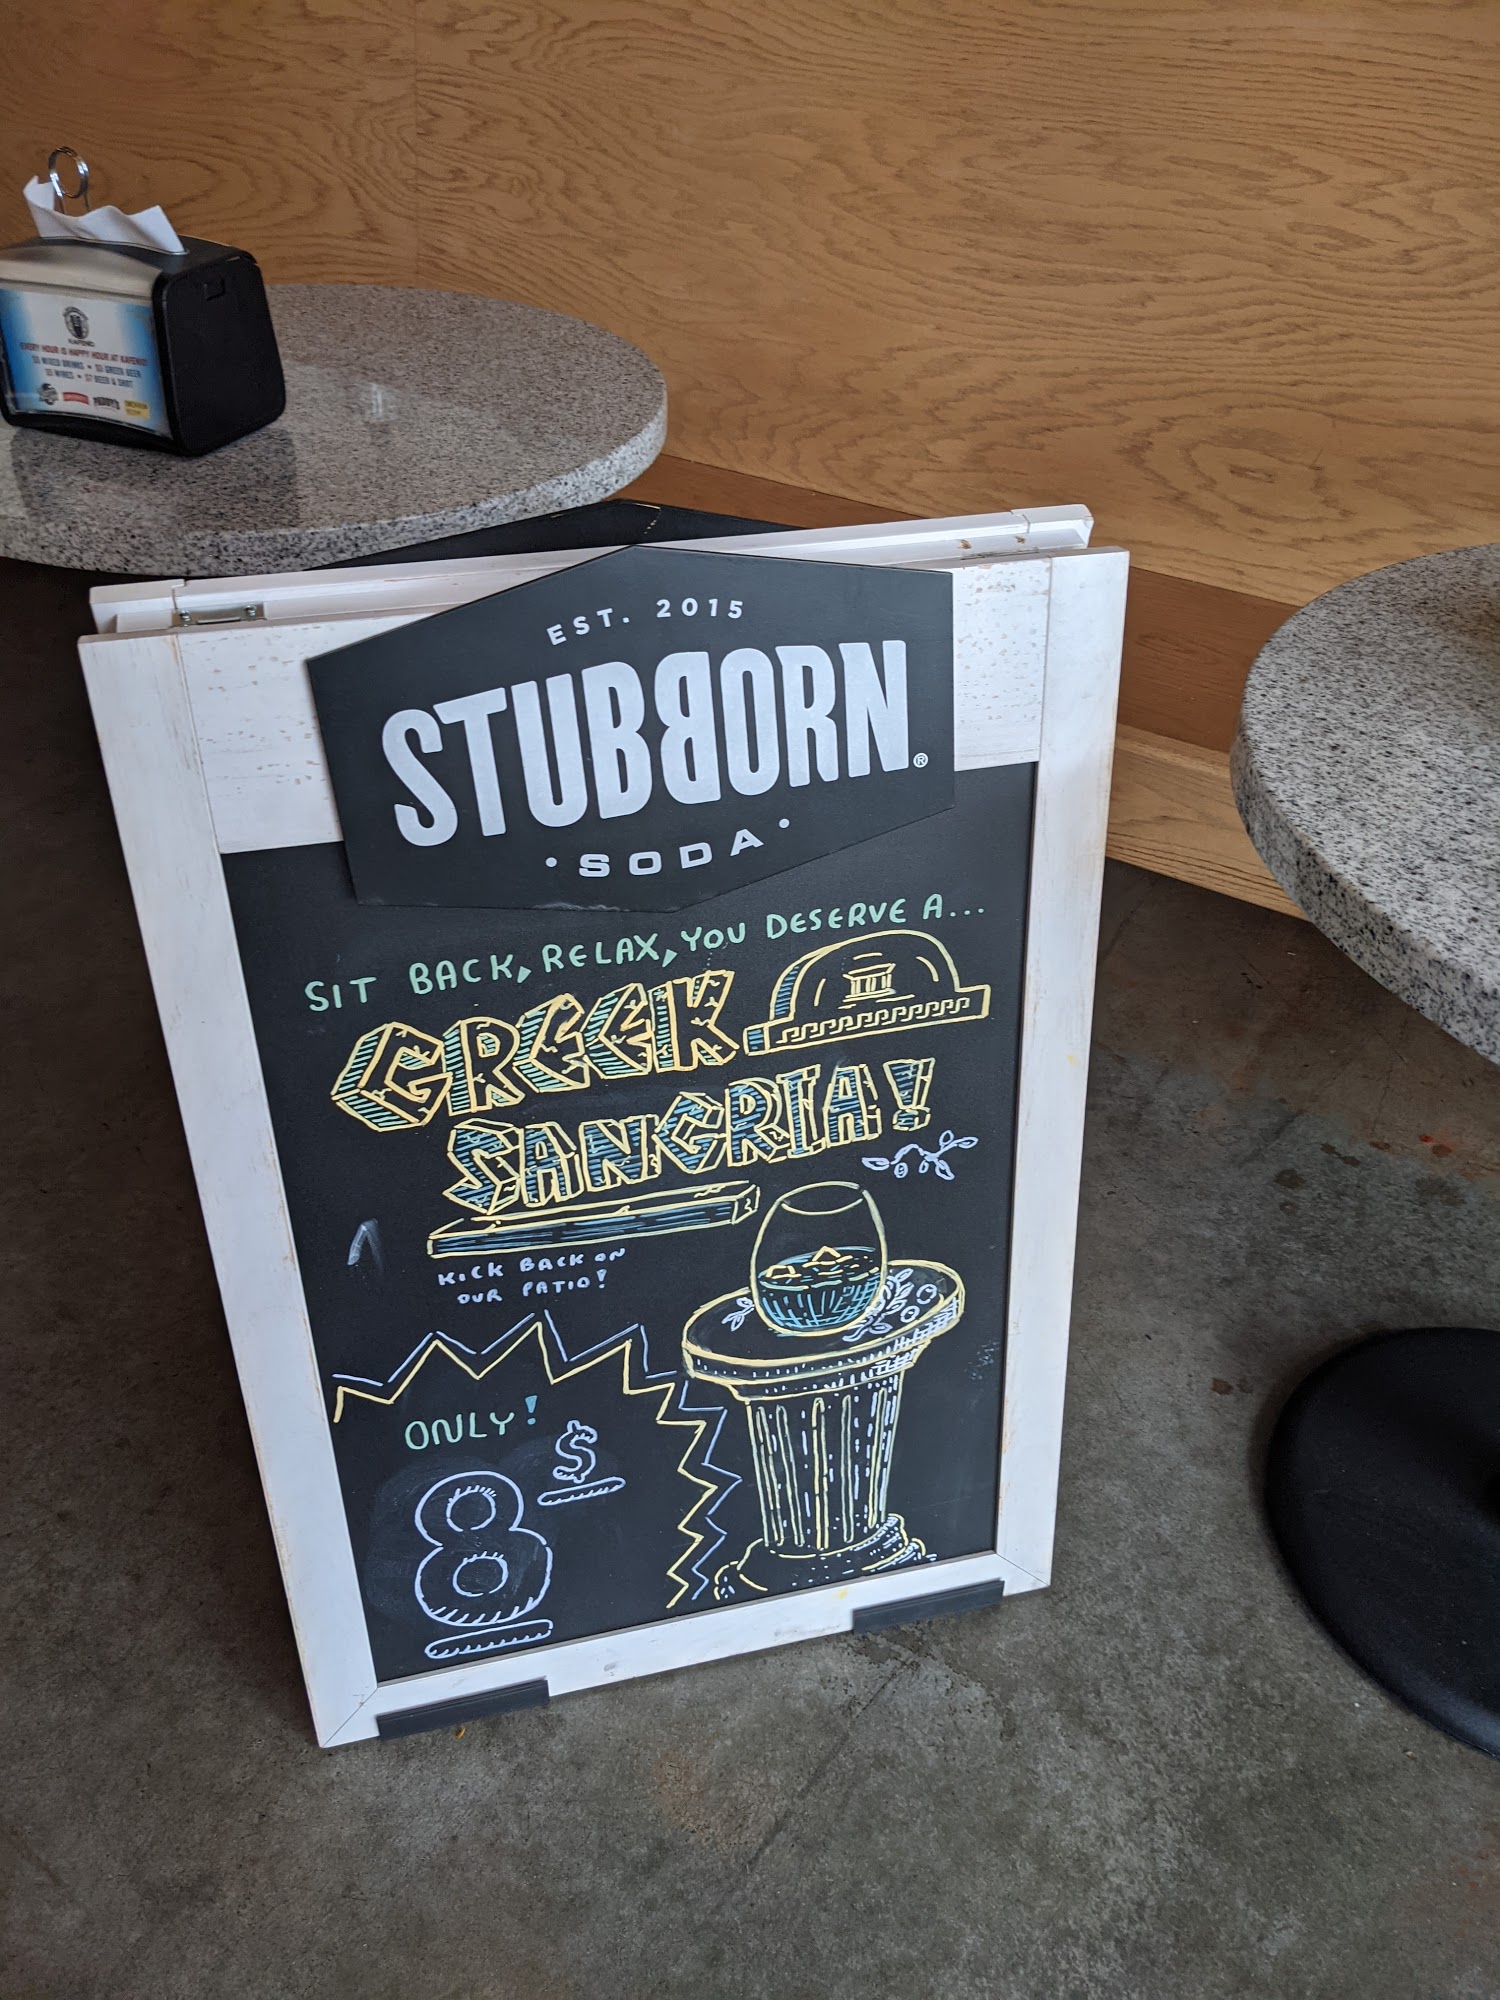 KAFENIO
EVERY HOUR IS HAPPY HOUR AT KAFENIO!
$5 MIXED DRINKS • $3 GREEK BEER
$5 WINES • $7 BEER & SHOT
EST. 2015
STUBBORN®
• SODA •
SIT BACK, RELAX, YOU DESERVE A...
GREEK
SANGRIA!
KICK BACK ON
OUR PATIO!
ONLY!
8 $